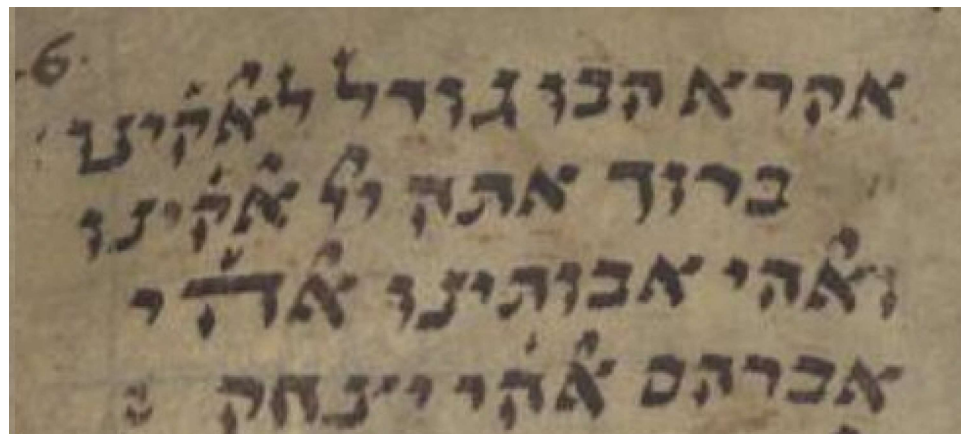 .6.
אקרא הבו גודל לאלהינו
ברוך אתה ייי אלהינו
ואלהי אבותינו אלהי
אברהם אלהי יצחק